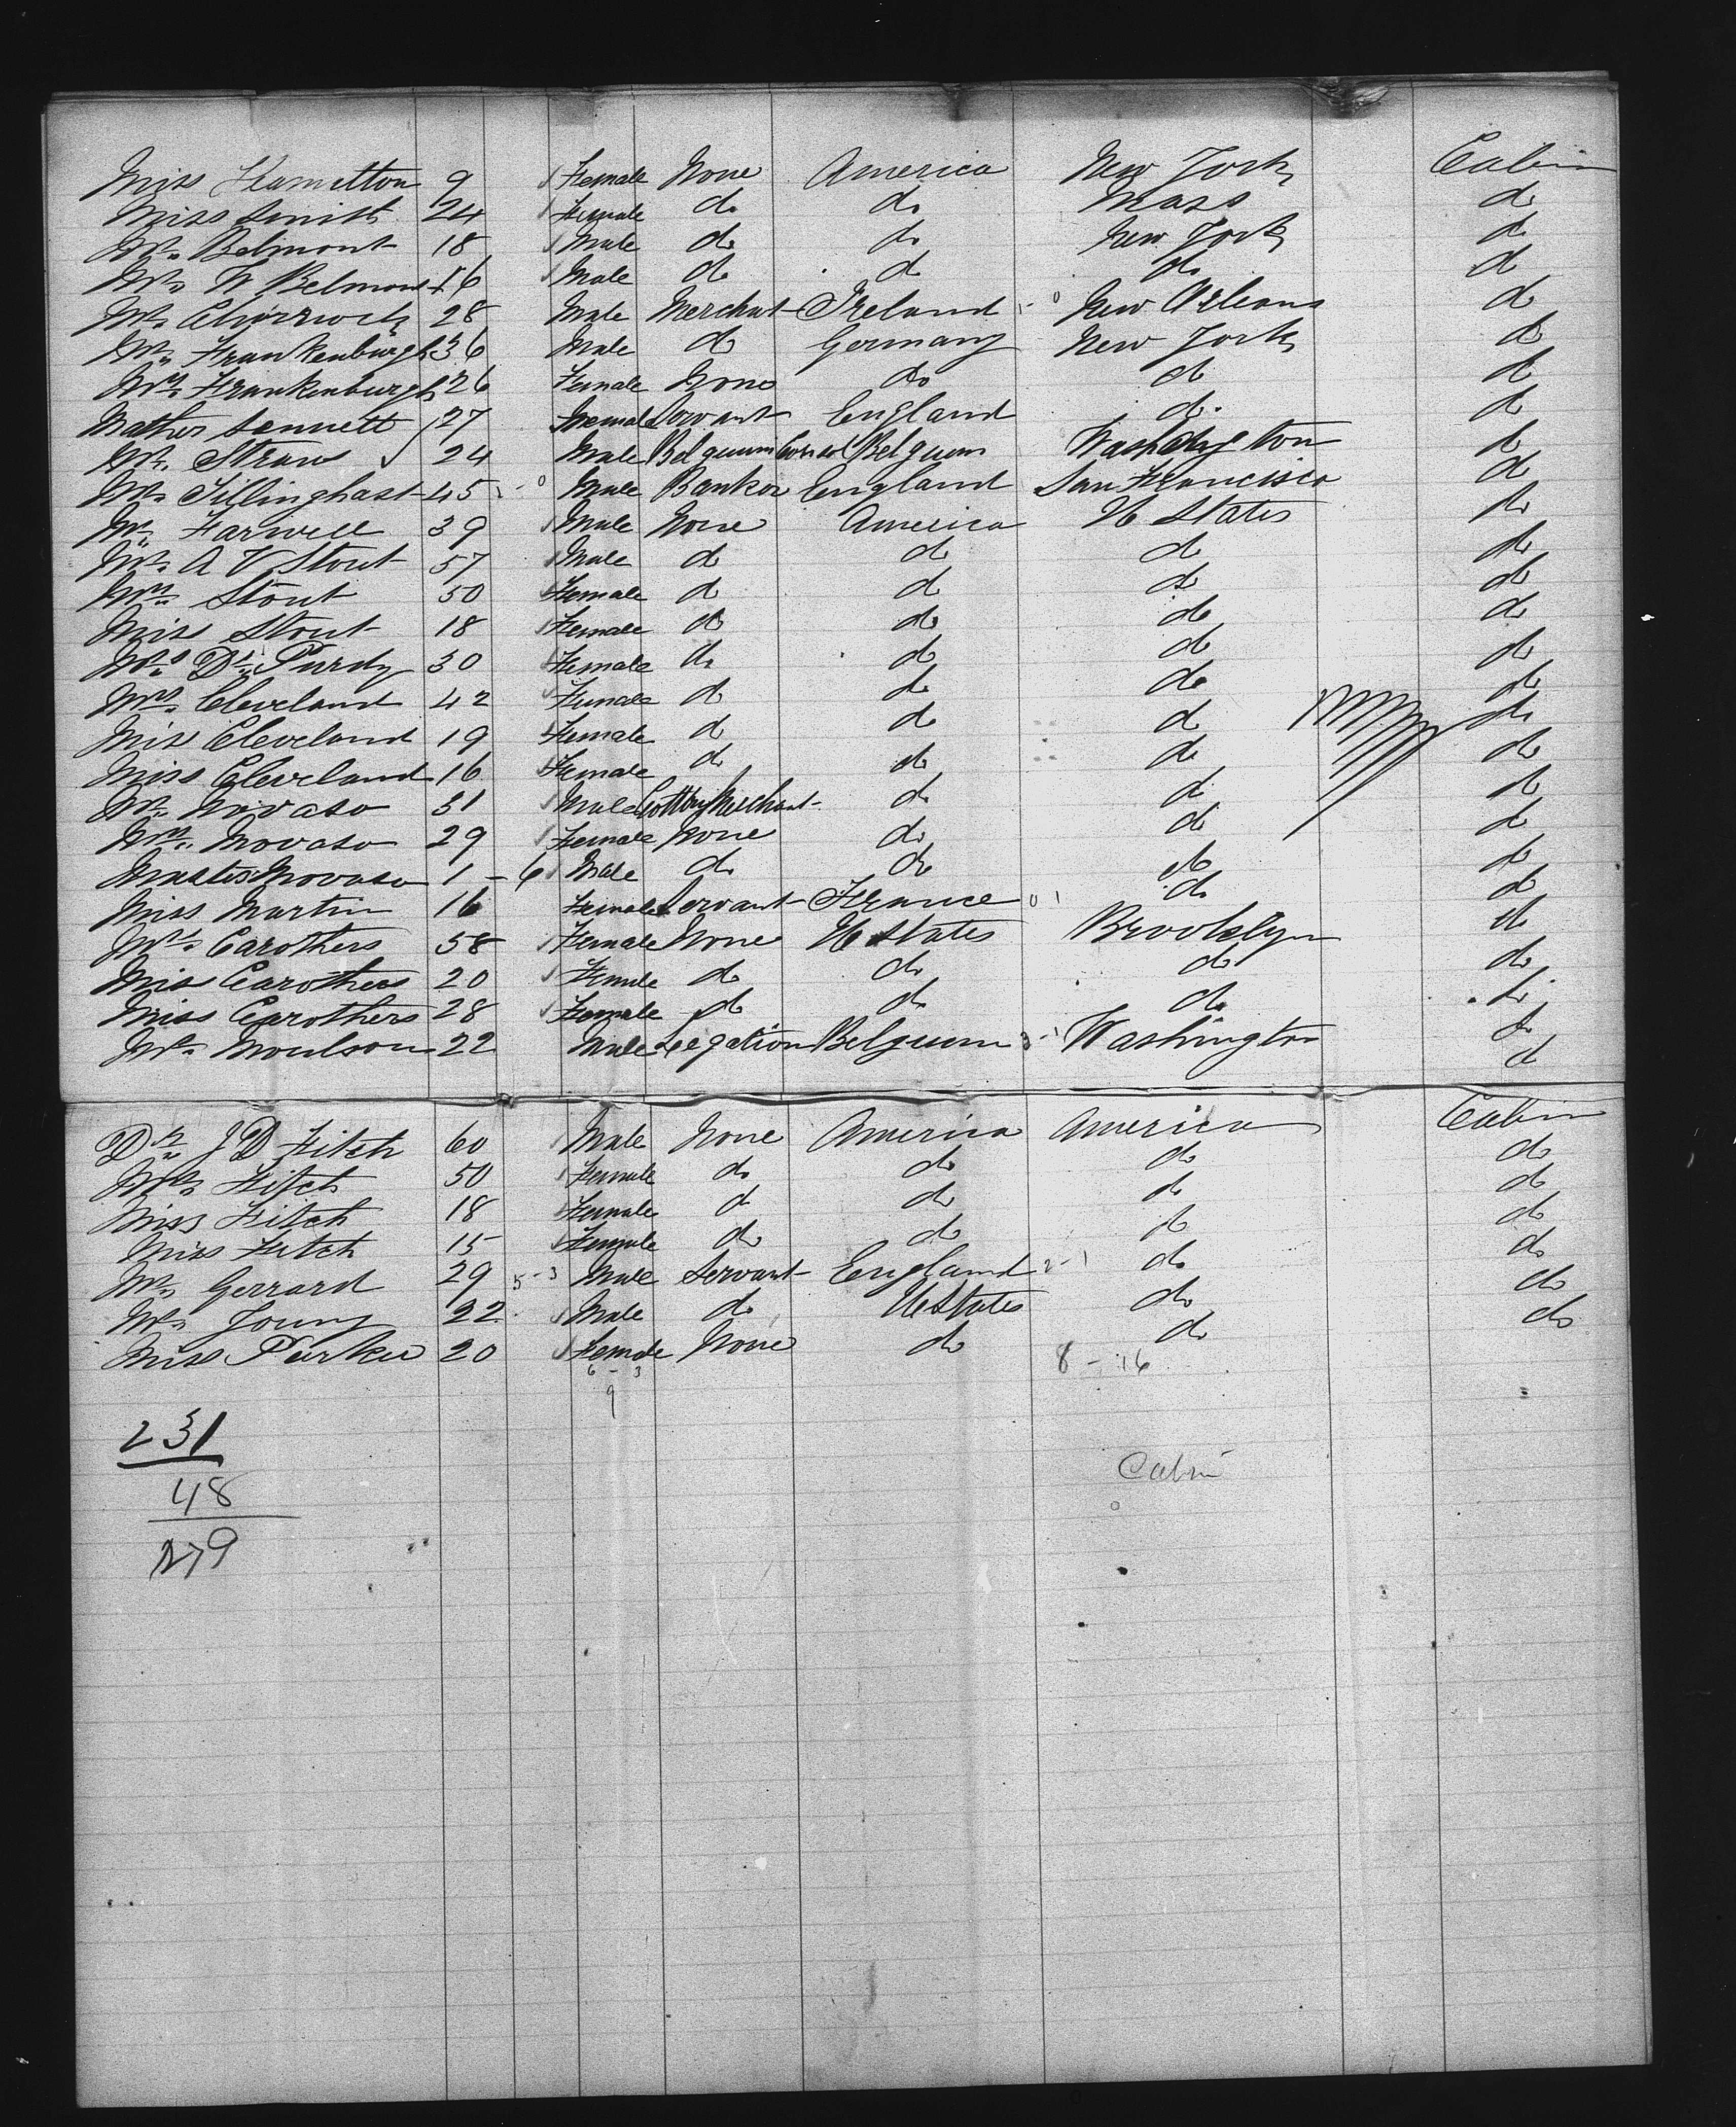 Miss Hamilton 9 Female None America New York Cabin
Miss Smith 24 Female do do Mass do
Mr. Belmont 18 Male do do New York do
Mr. W Belmont 16 Male do do do do
Mr. 28 Male Merchant Ireland New Orleans do
Mr. Frankenburgh 36 Male do Germany New York do
Mrs. Frankenburgh 26 Female None do do do
Mather Sennett 27 Servant England do do
Mr. Straus 24 Male Belguum Consol Belguum Washington do
Mr. Tillinghast 45 Male Banker England San Francisco do
Mr. Farwell 39 Male None America U States do
Mr. A V Stout 57 Male do do do do
Mrs. Stout 50 Female do do do do
Miss Stout 18 Female do do do do
Mrs. Dr. Purdy 30 Female do do do do
Mrs. Cleveland 42 Female do do do do
Miss Cleveland 19 Female do do do do
Miss Cleveland 16 Female do do do do
Mr. Movaso 31 Male Cotton Merchant do do do
Mrs. Movaso 29 Female None do do do
Master Movaso 1 - 6 Male do do do do
Miss Martin 16 Female Servant France 0 1 do do
Mrs. Carothers 58 Female None U States Brooklyn do
Miss Carothers 20 Female do do do do
Miss Carothers 28 Female do do do do
Mr. Moulson 22 Male Legation Belguum 3 - 1 Washington do
do
Dr. J D Fitch 60 Male None America America Cabin
Mrs. Fitch 50 Female do do do do
Miss Fitch 18 Female do do do do
Miss Fitch 15 Female do do do do
Mr. Gerrard 29 5 - 3 Male Servant England 2 - 1 do do
Mr. Young 22 Male do U States do do
Miss Parker 20 Female None do do do
6 - 3 8 - 16
9
231
48 Cabin
279